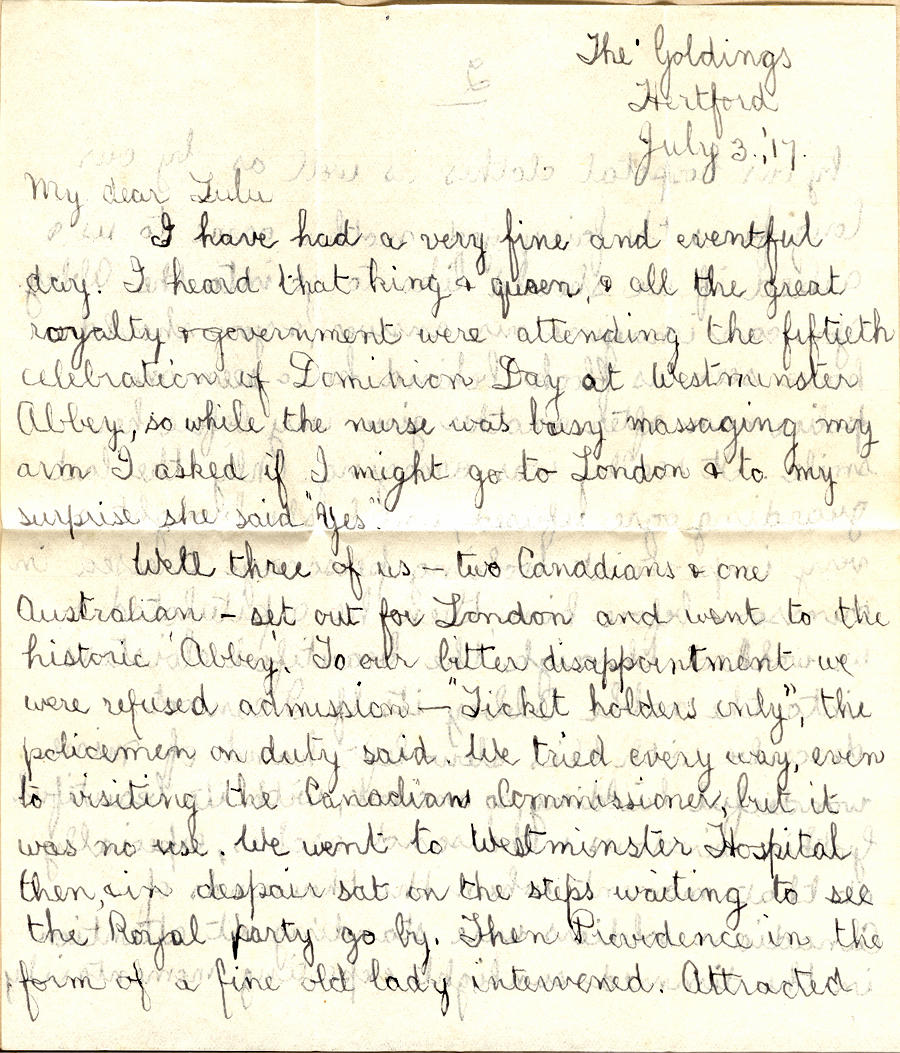 The Goldings
Hertford
July 3.,'17.
My dear Lulu
I have had a very fine and eventful
day. I heard that king & queen, & all the great
royalty & government were attending the fiftieth
celebration of Dominion Day at Westminster
Abbey, so while the nurse was busy massaging my
arm I asked if I might go to London & to my
surprise she said "Yes".
Well three of us – two Canadians & one
Australian – set out for London and went to the
historic 'Abbey'. To our bitter disappointment we
were refused admission — "Ticket holders only", the
policemen on duty said. We tried every way, even
to visiting the Canadian Commissioner, but it
was no use. We went to Westminster Hospital
then, & in despair sat on the steps waiting to see
the Royal party go by. Then Providence in the
form of a fine old lady intervened. Attracted